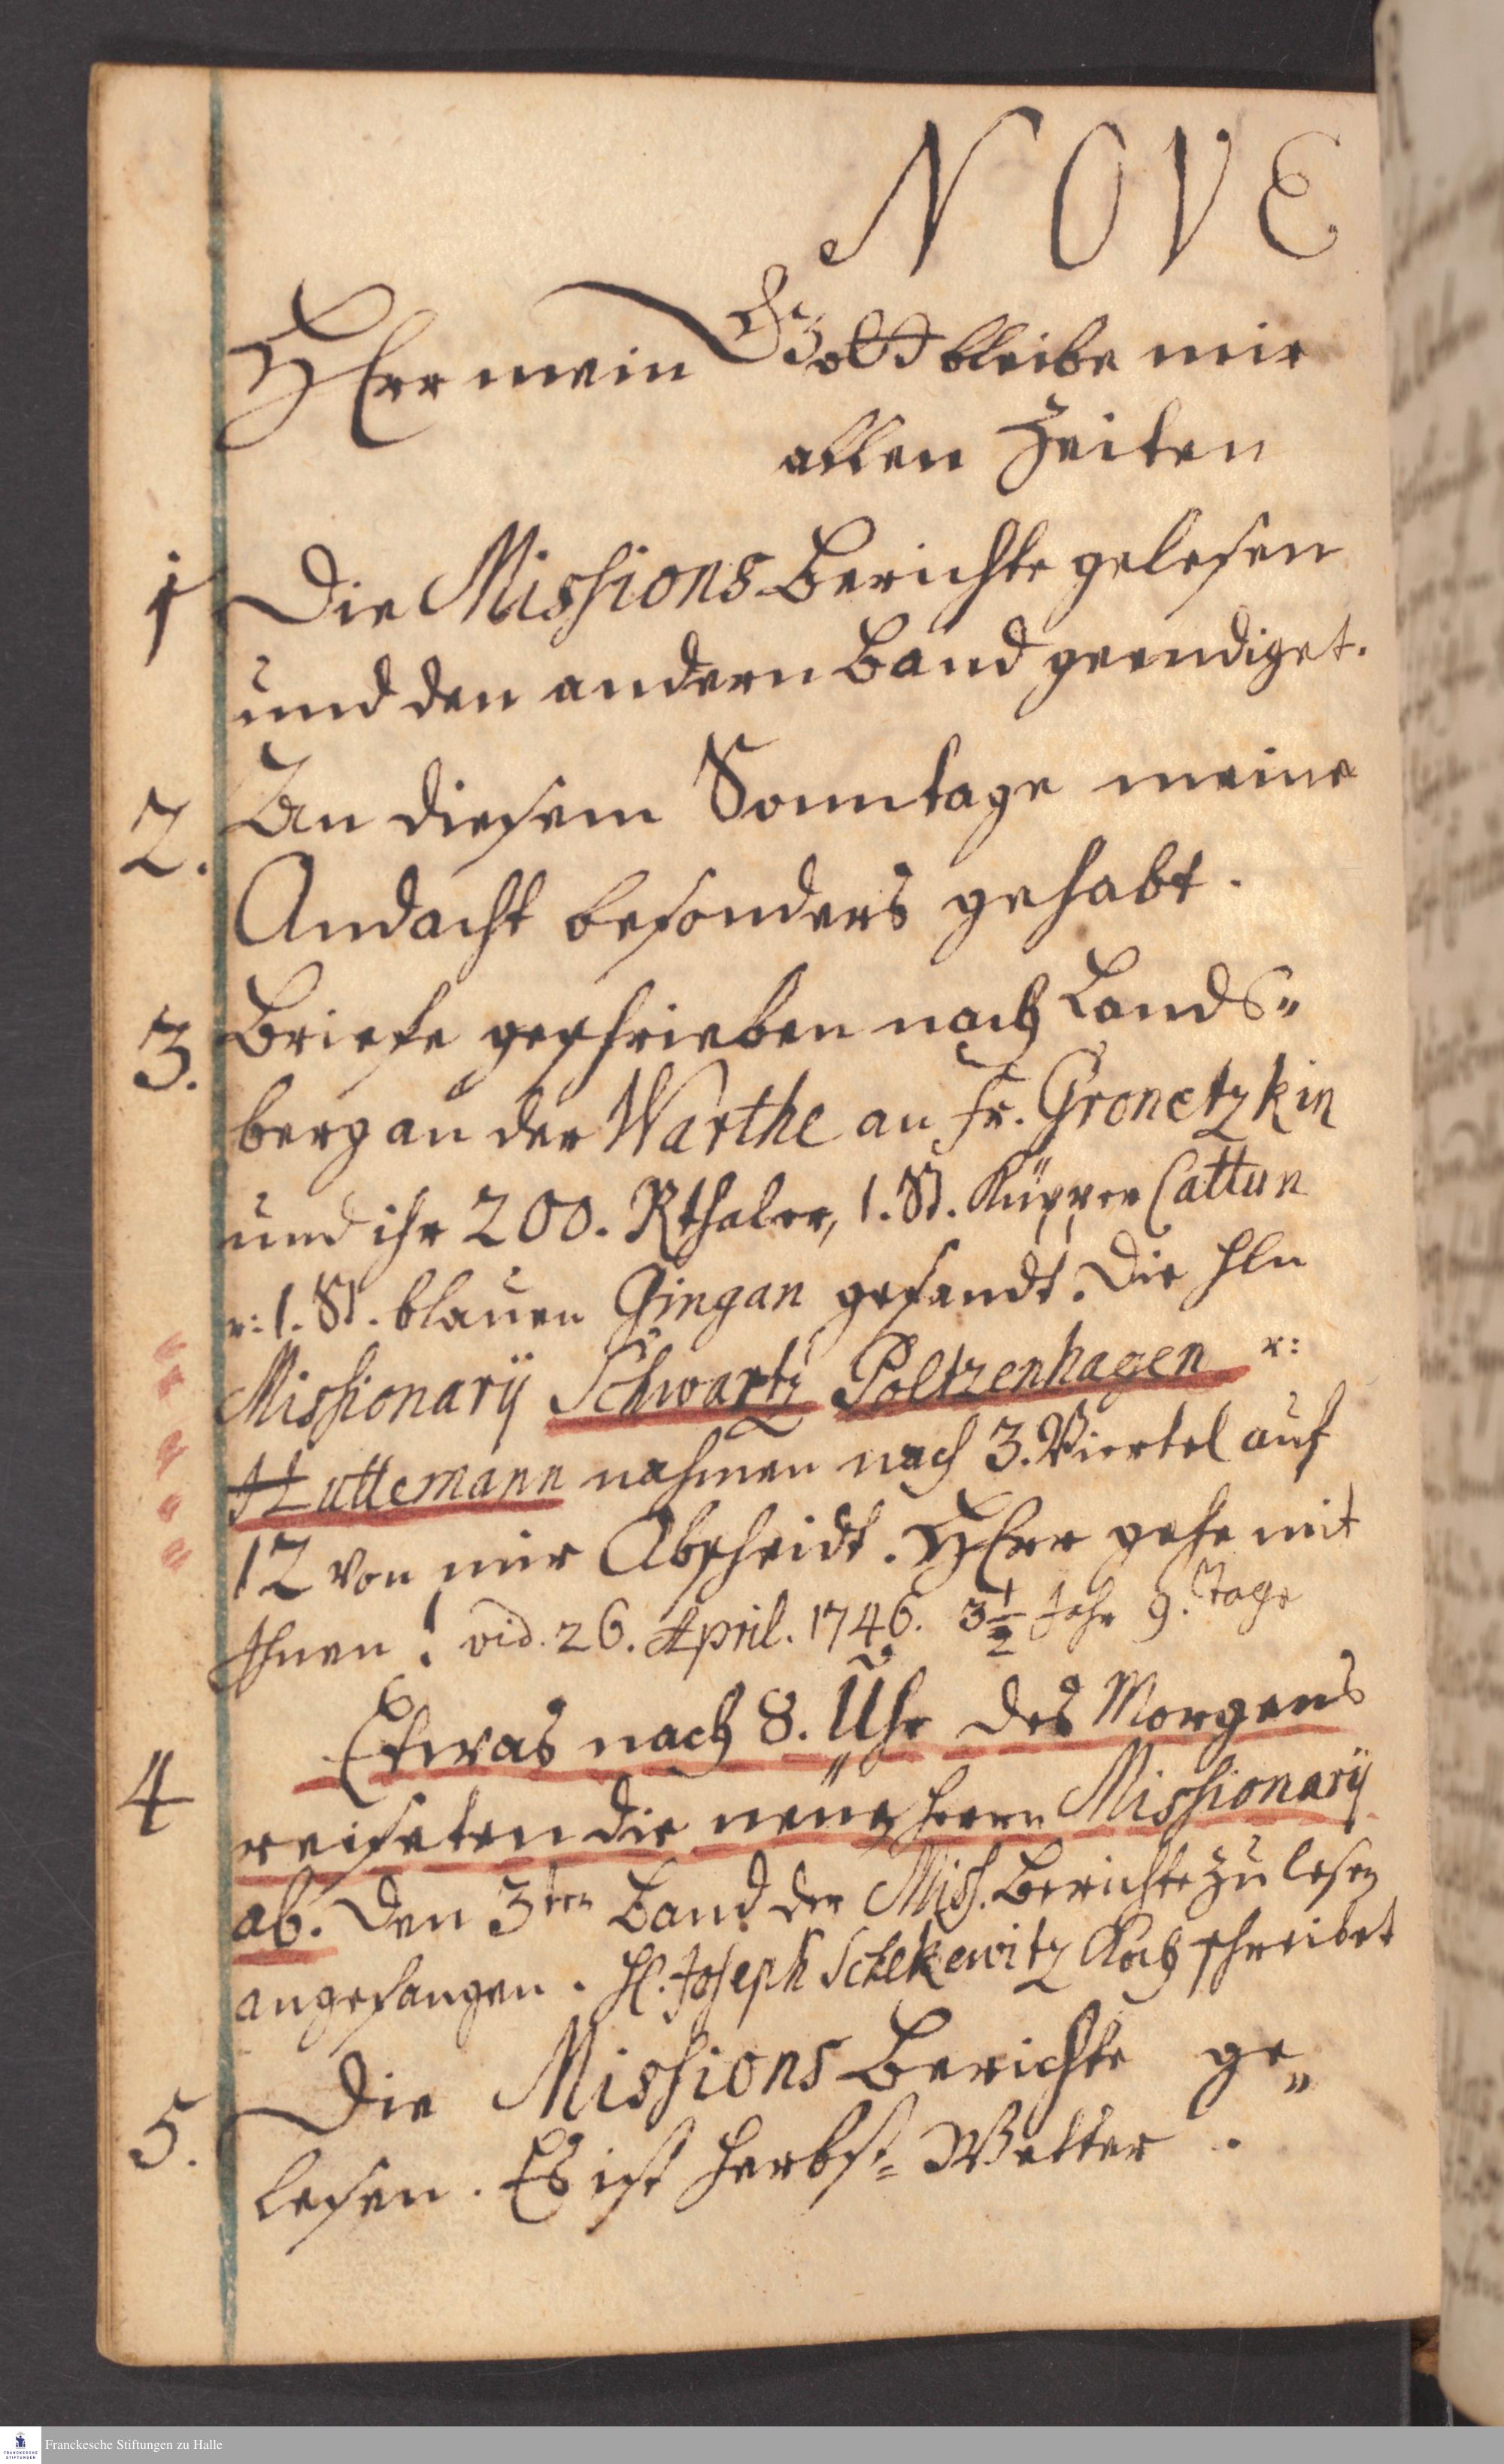 NOVE
HErr mein GOtt bleibe mir
allen Zeiten
1 Die Missions Berichte gelesen
und den andern Band geendiget.
2. An diesem Sonntage meine
Andacht besonders gehabt.
3. Briefe geschrieben nach Lands-
berg an der Warthe an Fr. Gronetzkin
und ihr 200. Rthaler, 1. St. Küpper Cattun
u: 1. St. blauen Gingan gesandt. Die HEn
Missionarij Schwartz Poltzenhagen u:
Huttemann nahmen nach 3. Viertel auf
12 von mir Abscheidt. HErr gehe mit
Ihnen! vid. 26. April. 1746. 3½ Jahr 9. Tage
4 Etwas nach 8. Uhr des Morgens
reiseten die neuen Herrn Missionarij
ab. Den 3ten Band der Miss. Berichte zu lesen
angefangen. H. Joseph Sckekewitz Koch schreibet
5. Die Missions Berichte ge-
lesen. Es ist Herbst-Wetter.
Franckesche Stiftungen zu Halle
FRANCKESCHE
STIFTUNGEN